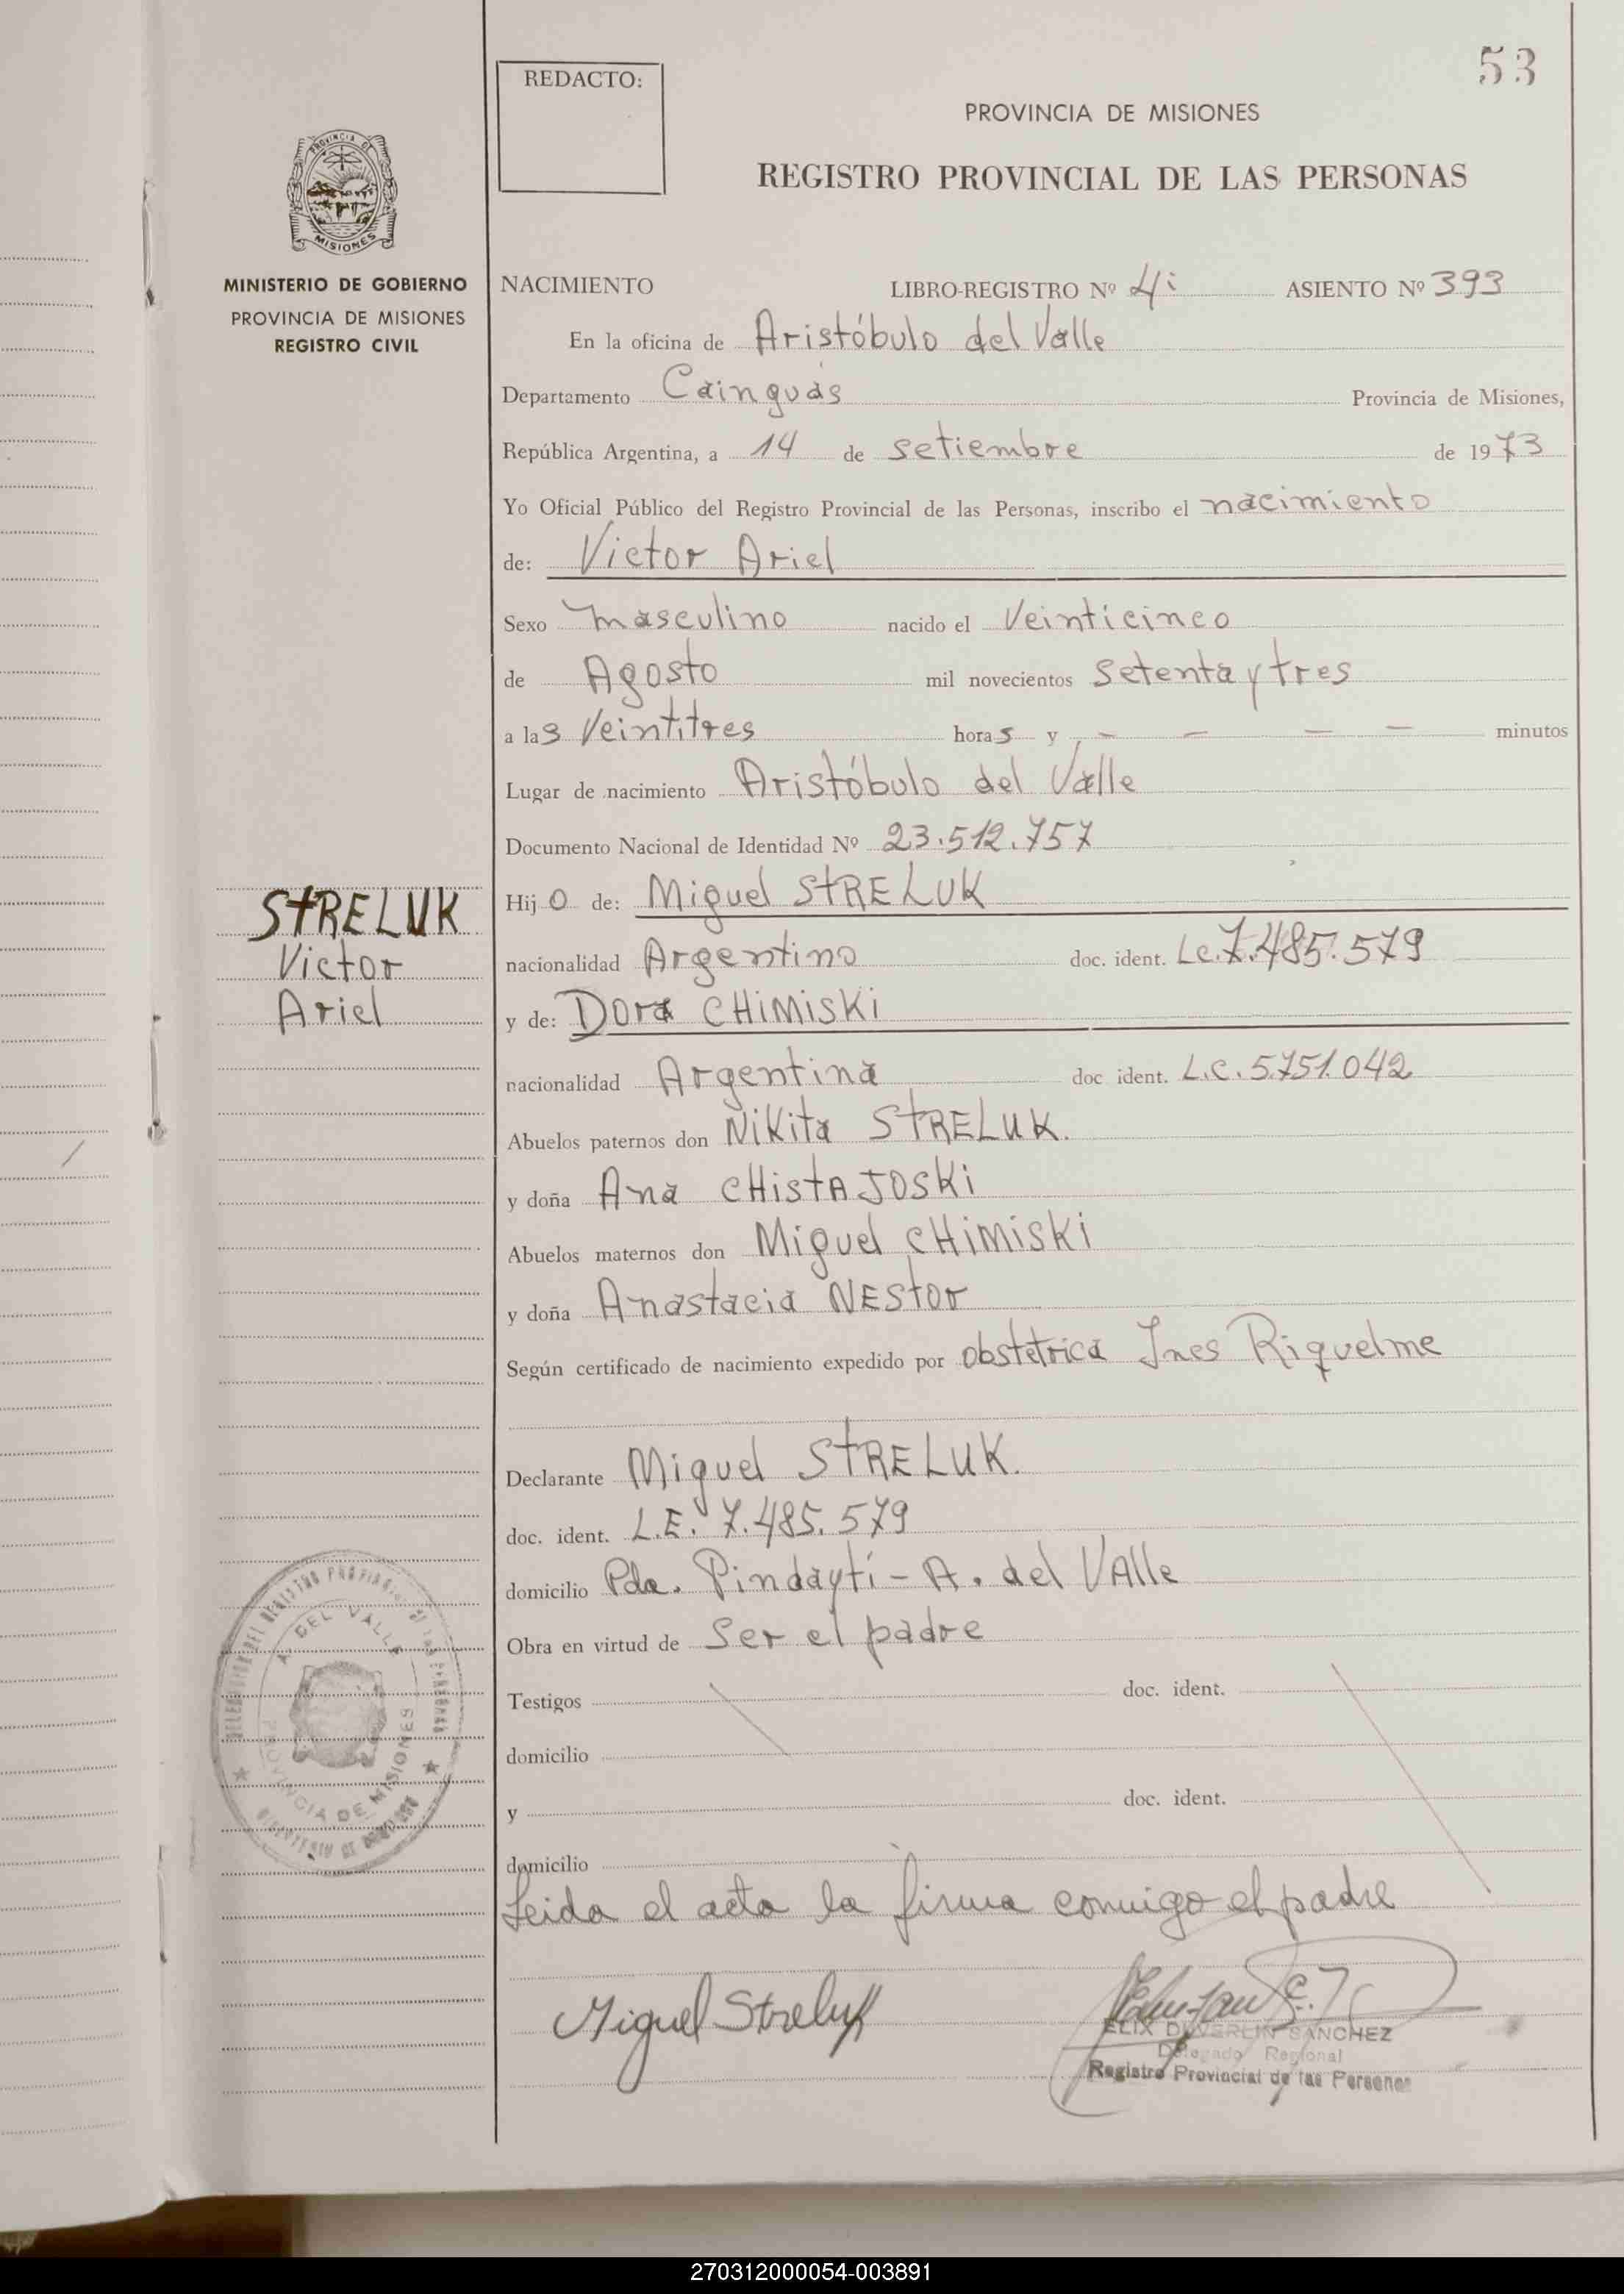 53
REDACTO:
PROVINCIA DE MISIONES
REGISTRO PROVINCIAL DE LAS PERSONAS
PROVINCIA DE
MISIONES
MINISTERIO DE GOBIERNO
PROVINCIA DE MISIONES
REGISTRO CIVIL
NACIMIENTO LIBRO-REGISTRO Nº 4i ASIENTO Nº 393
En la oficina de Aristóbulo del Valle
Departamento Cainguás Provincia de Misiones,
República Argentina, a 14 de setiembre de 1973
Yo Oficial Público del Registro Provincial de las Personas, inscribo el nacimiento
de: Victor Ariel
Sexo masculino nacido el Veinticinco
de Agosto mil novecientos setenta y tres
a las Veintitres horas y — — — — minutos
Lugar de nacimiento Aristóbulo del Valle
Documento Nacional de Identidad Nº 23.512.757
STRELUK
Victor
Ariel
Hijo de: Miguel STRELUK
nacionalidad Argentino doc. ident. Le.7.485.579
y de: Dora CHIMISKI
nacionalidad Argentina doc ident. L.C.5.751.042
Abuelos paternos don Nikita STRELUK.
y doña Ana CHISTAJOSKI
Abuelos maternos don Miguel CHIMISKI
y doña Anastacia NESTOR
Según certificado de nacimiento expedido por obstétrica Ines Riquelme
Declarante Miguel STRELUK.
doc. ident. L.E. 7.485.579
domicilio Pda. Pindaytí - A. del VAlle
Obra en virtud de Ser el padre
Testigos doc. ident.
domicilio
y doc. ident.
domicilio
Leida el acta la firma conmigo el padre
DELEGACION DEL REGISTRO PROVINCIAL DE LAS PERSONAS
A. DEL VALLE
PROVINCIA DE MISIONES
MINISTERIO DE GOBIERNO
Miguel Streluk
SANCHEZ
Delegado Regional
Registro Provincial de las Personas
270312000054-003891